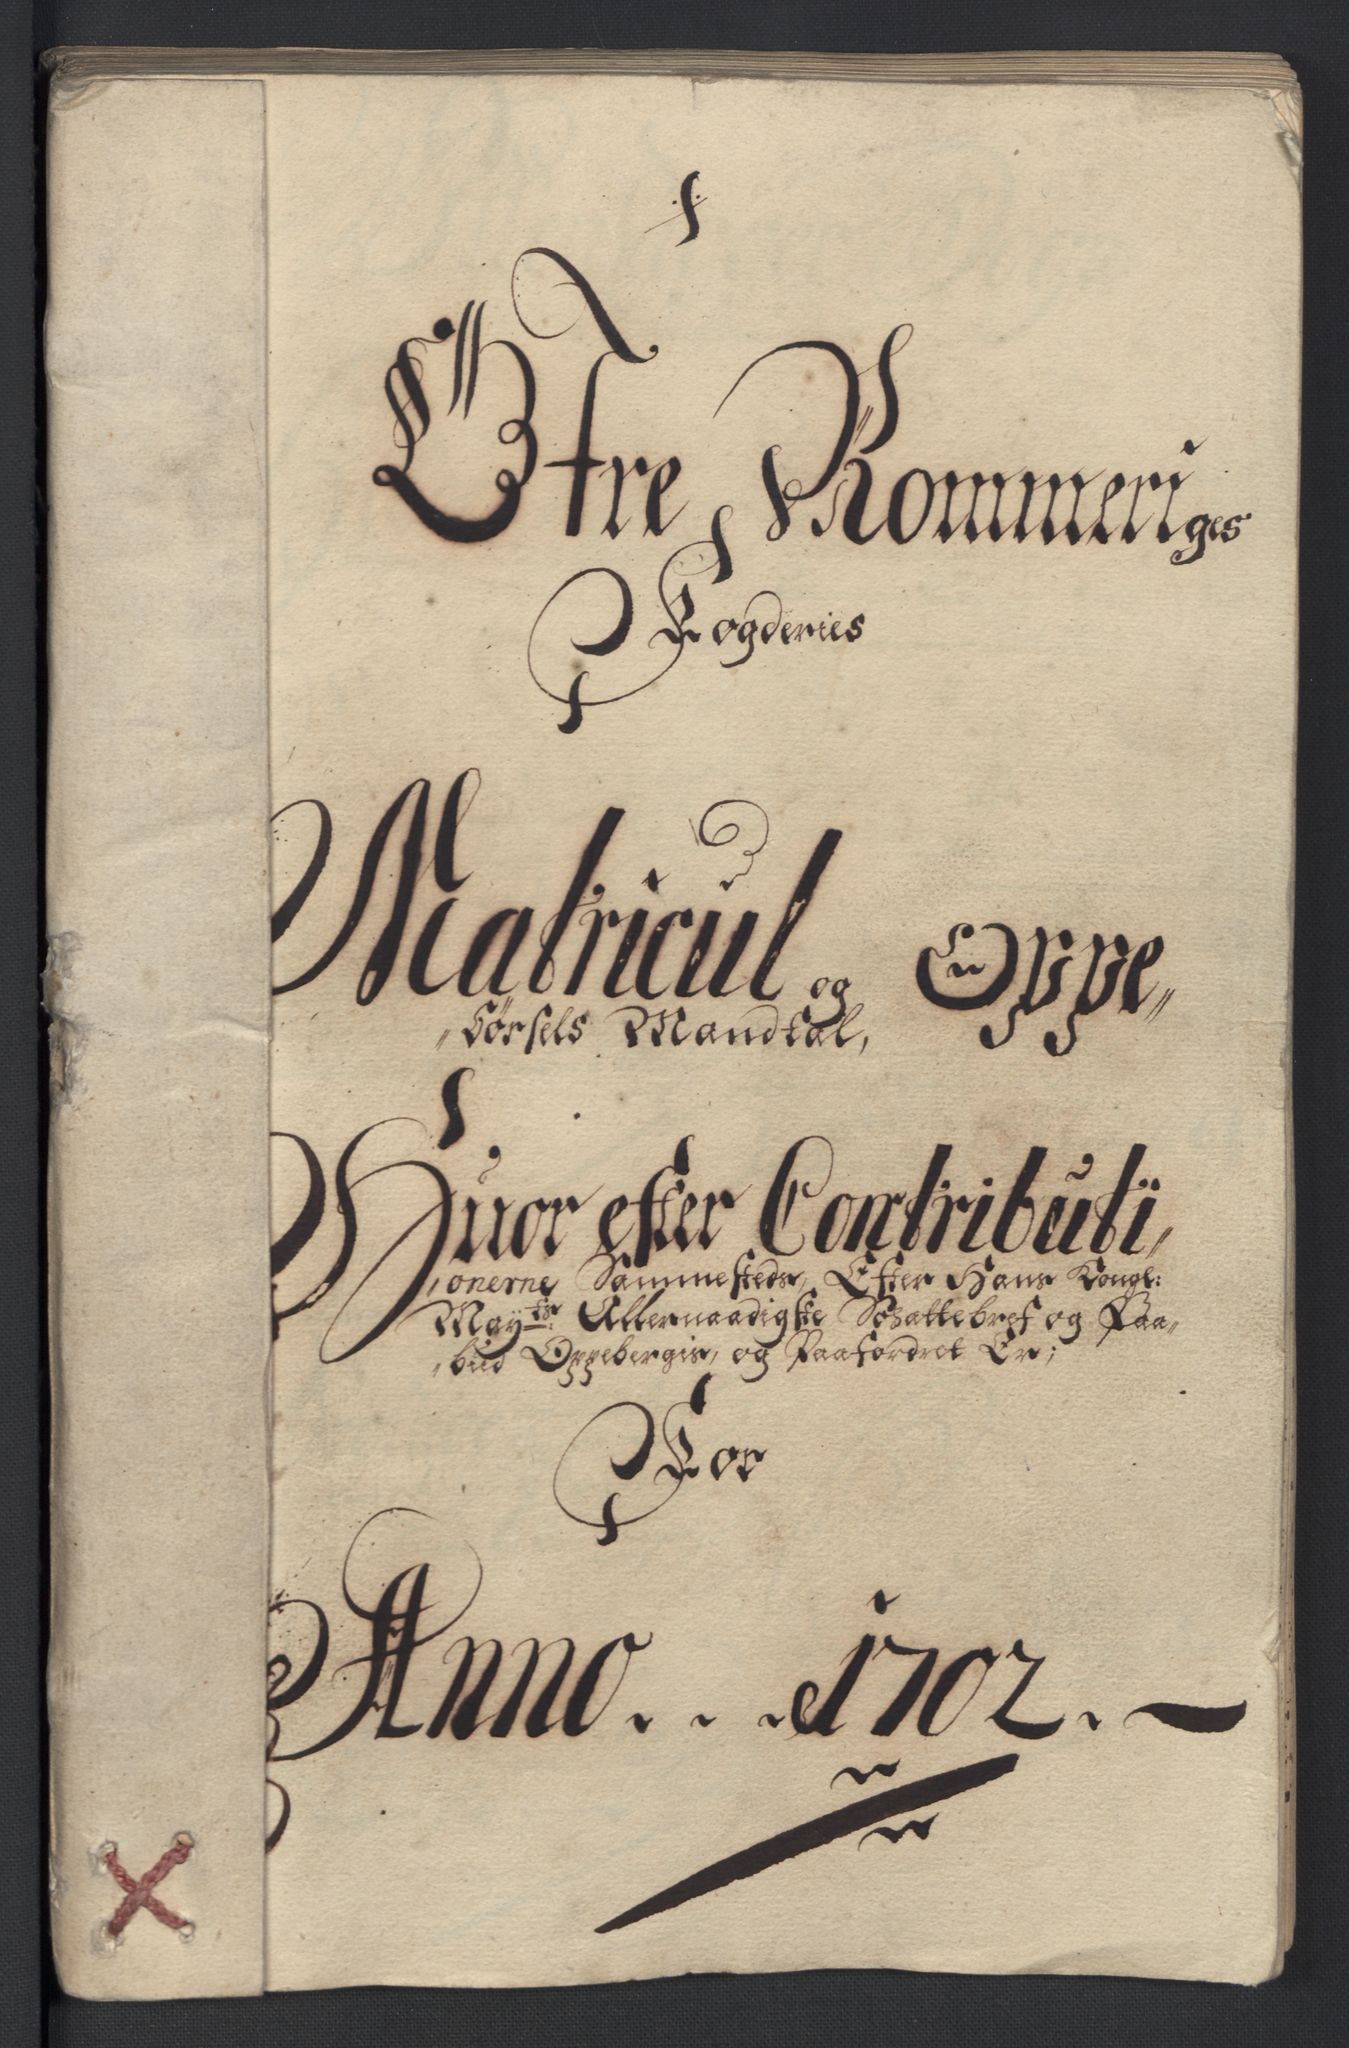 Øfre Rommeriges
Fogderies
Matricul og Oppe„
„börsels Mandtal,
Huor efter Contributi„
„onerne Sammesteds, Efter Hans Kongl:
May:ts Allernaadigste Schattebref og Paa„
„bud Oppebergis, og Paafordret Er;
For
Anno . . . 1702.